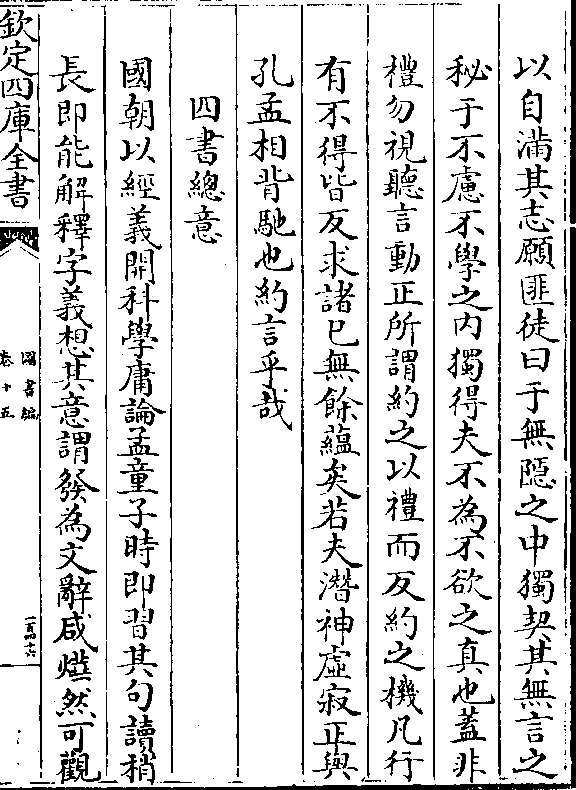 以自滿其志願匪徒曰于無隱之中獨契其無言之
秘于不慮不學之内獨得夫不為不欲之真也蓋非
禮勿視聽言動正所謂約之以禮而反約之機凡行
有不得皆反求諸已無餘蘊矣若夫潛神虚寂正與
孔孟相背馳也約言乎哉
四書總意
國朝以經義開科學庸論孟童子時即習其句讀稍
長即能解釋字義想其意謂發為文辭咸燁然可觀
欽定四庫全書
圖書編
卷十五